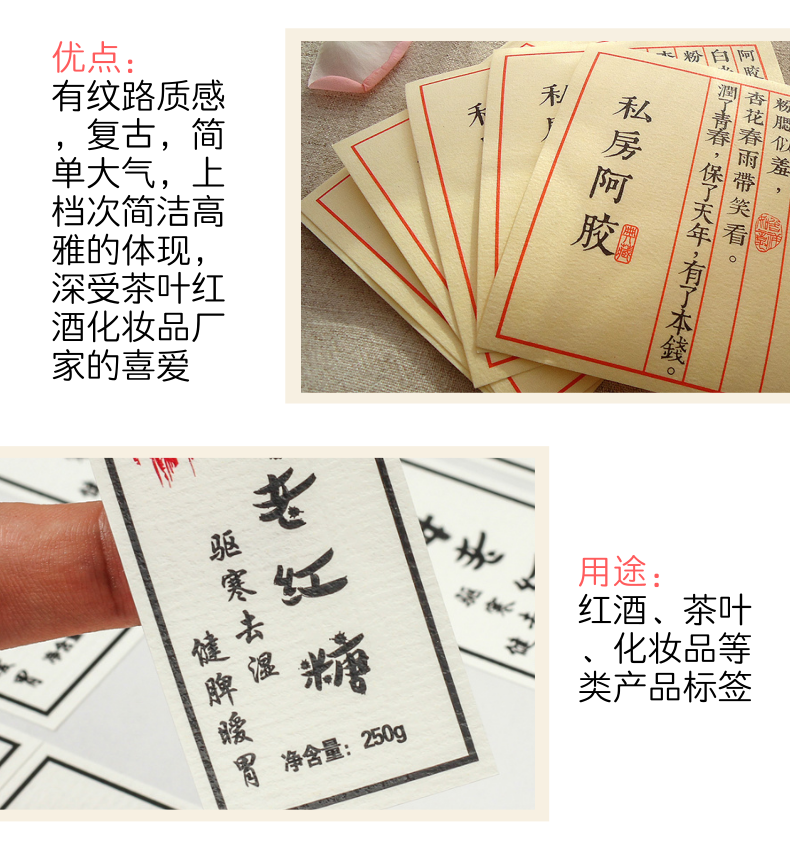 优点：
有纹路质感
，复古，简
单大气，上
档次简洁高
雅的体现，
深受茶叶红
酒化妆品厂
家的喜爱
粉腮似羞，
杏花春雨帶笑看。
潤了青春，保了天年，有了本錢。
私房阿胶
典藏
老红糖
驱寒去湿
健脾暖胃
净含量：250g
用途：
红酒、茶叶
、化妆品等
类产品标签